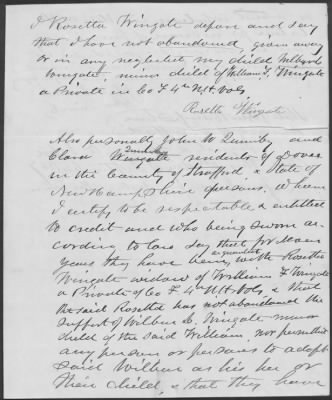 I Rosetta Wingate depose and say
that I have not abandoned, given away
or in any neglected my child Wilbur S.
Wingate, minor child of William F. Wingate
a Private in Co F 4th N.H. Vols,
Rosetta Wingate
Also personally John W Quimby and
Clara Quimby residents of Dover
in the County of Strafford, & State of
New Hampshire persons, whom
I certify to be respectable & entitled
to credit and who being sworn ac-
cording to law say that for
years they have been acquainted with Rosetta
Wingate widow of William F Wingate
a Private of Co F 4th N.H. Vols, & that
the said Rosetta has not abandoned the
support of Wilbur S. Wingate minor
child of the said William, nor permitted
any person or persons to adopt
said Wilbur as his her or
their child, & that they have